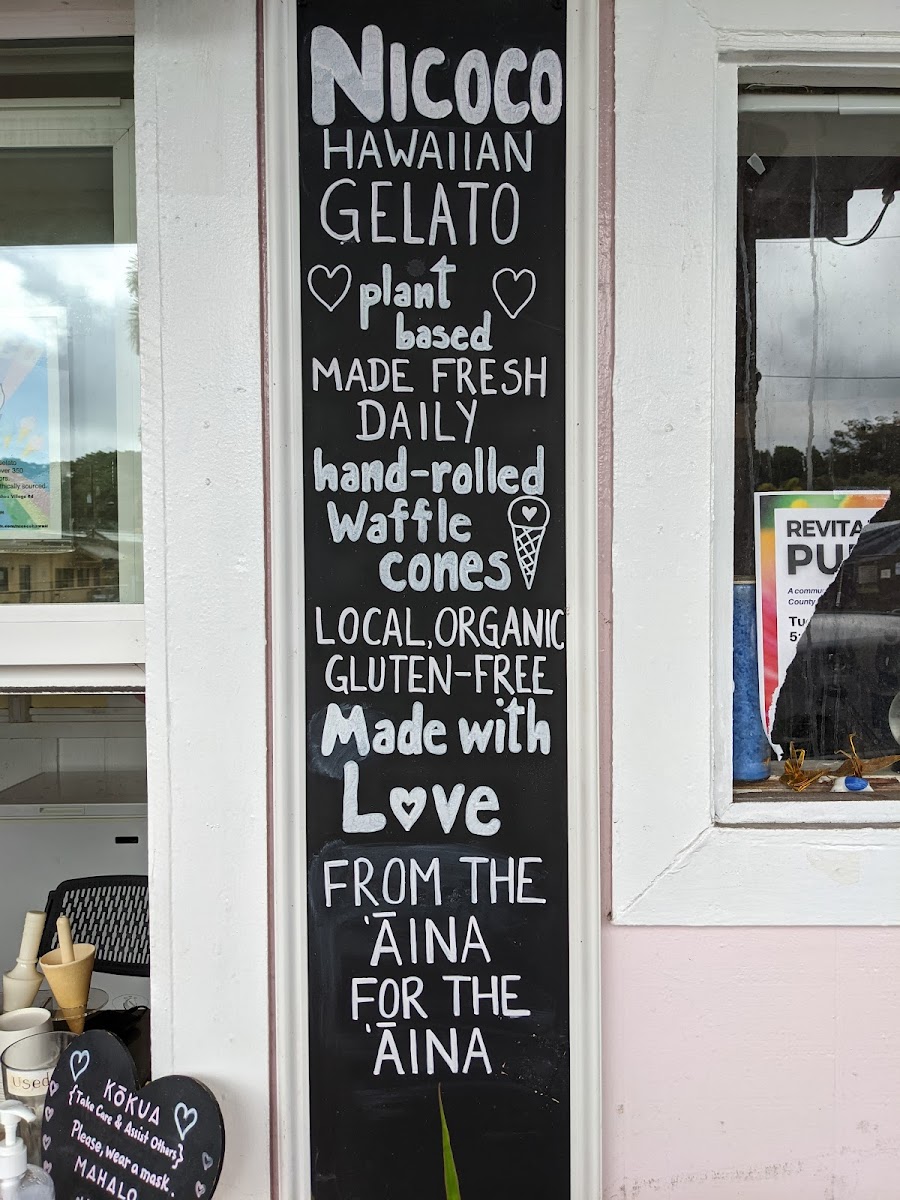 NICOCO
HAWAIIAN
GELATO
plant
based
MADE FRESH
DAILY
hand-rolled
Waffle
cones
LOCAL, ORGANIC
GLUTEN-FREE
Made with
Love
FROM THE
ʻĀINA
FOR THE
ʻĀINA
over 350
ethically sourced.
REVITA
PU
A commu
County
Tu
5:
Used
KŌKUA
{Take Care & Assist Others}
Please, wear a mask.
MAHALO